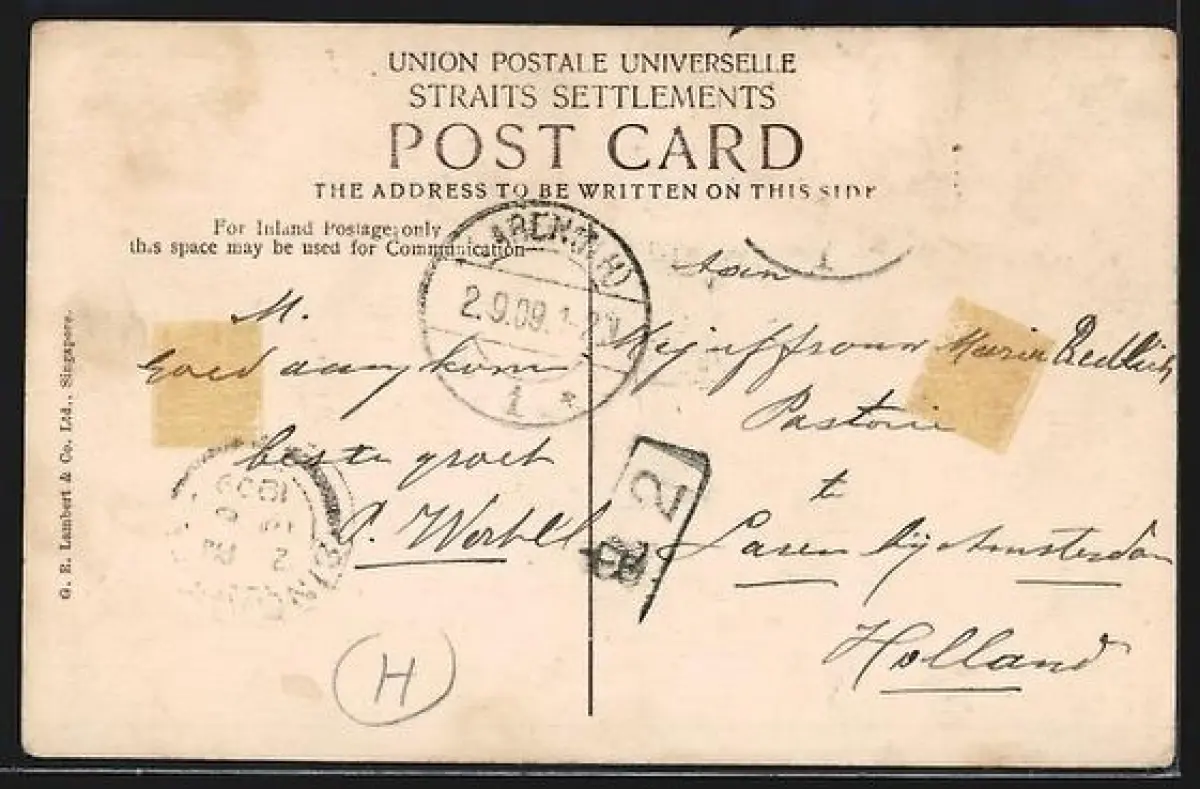 UNION POSTALE UNIVERSELLE
STRAITS SETTLEMENTS
POST CARD
THE ADDRESS TO BE WRITTEN ON THIS SIDE
For Inland Postage only
this space may be used for Communication
G. R. Lambert & Co. Ltd., Singapore.
LAREN (N.H)
2.9.09.
M.
Goed aangkom
beste groet
Aan
Mejuffrouw Marie Redlich
Pastorie
te
Laren bij Amsterdam
Holland
2
H